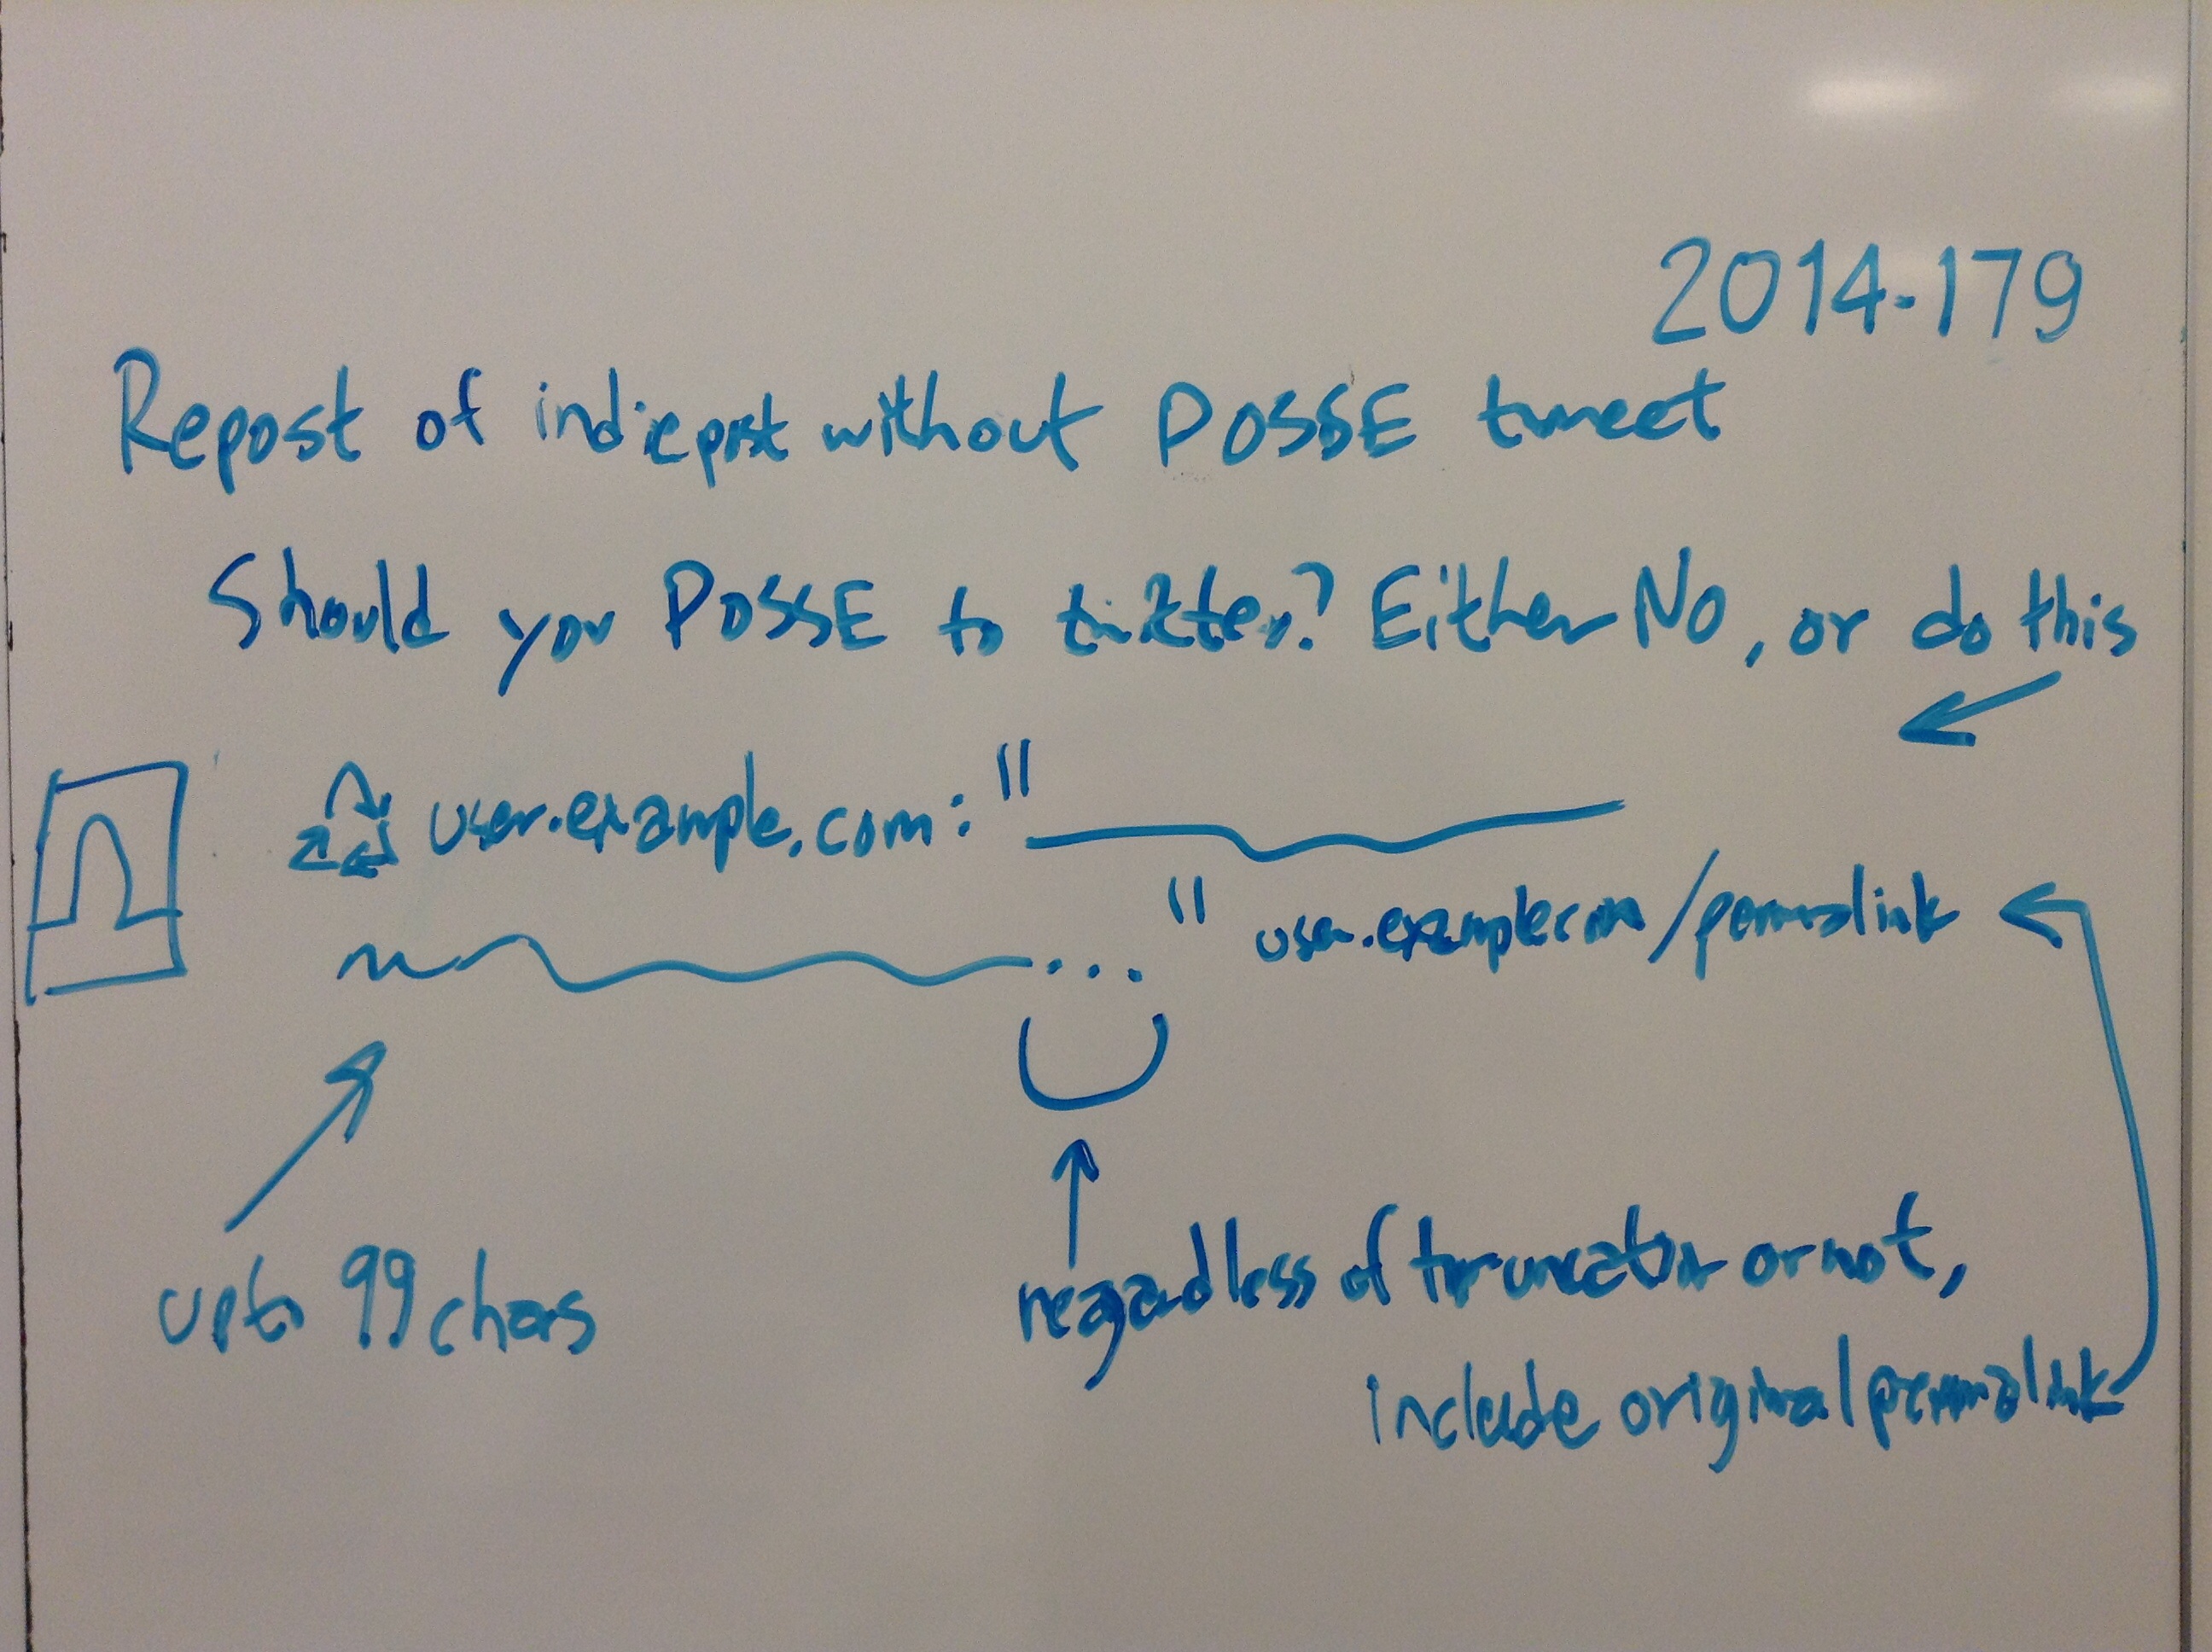 2014-179
Repost of indiepost without POSSE tweet
Should you POSSE to twitter? Either No, or do this
user.example.com: "
..." user.example.com/permalink
upto 99 chars
regardless of truncation or not,
include original permalink